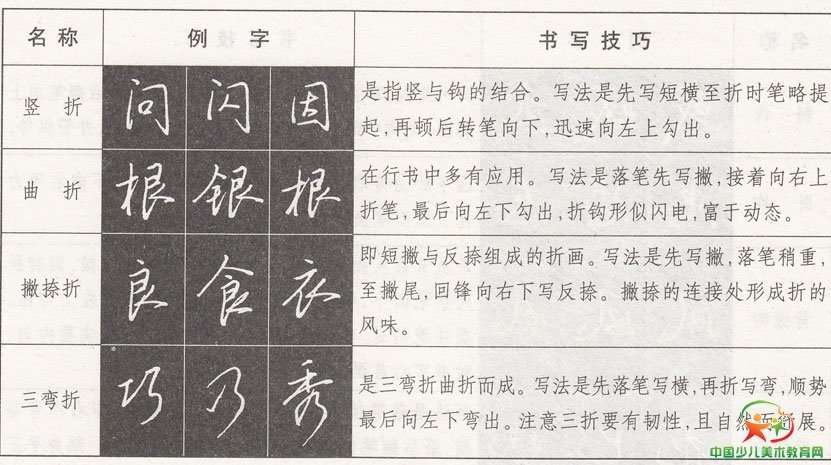 名称 例字 书写技巧
竖折 问 闪 因
是指竖与钩的结合。写法是先写短横至折时笔略提
起,再顿后转笔向下,迅速向左上勾出。
曲折 根 银 根
在行书中多有应用。写法是落笔先写撇,接着向右上
折笔,最后向左下勾出,折钩形似闪电,富于动态。
撇捺折 良 食 衣
即短撇与反捺组成的折画。写法是先写撇,落笔稍重,
至撇尾,回锋向右下写反捺。撇捺的连接处形成折的
风味。
三弯折 巧 乃 秀
是三弯折曲折而成。写法是先落笔写横,再折写弯,顺势
最后向左下弯出。注意三折要有韧性,且自然而舒展。
中国少儿美术教育网